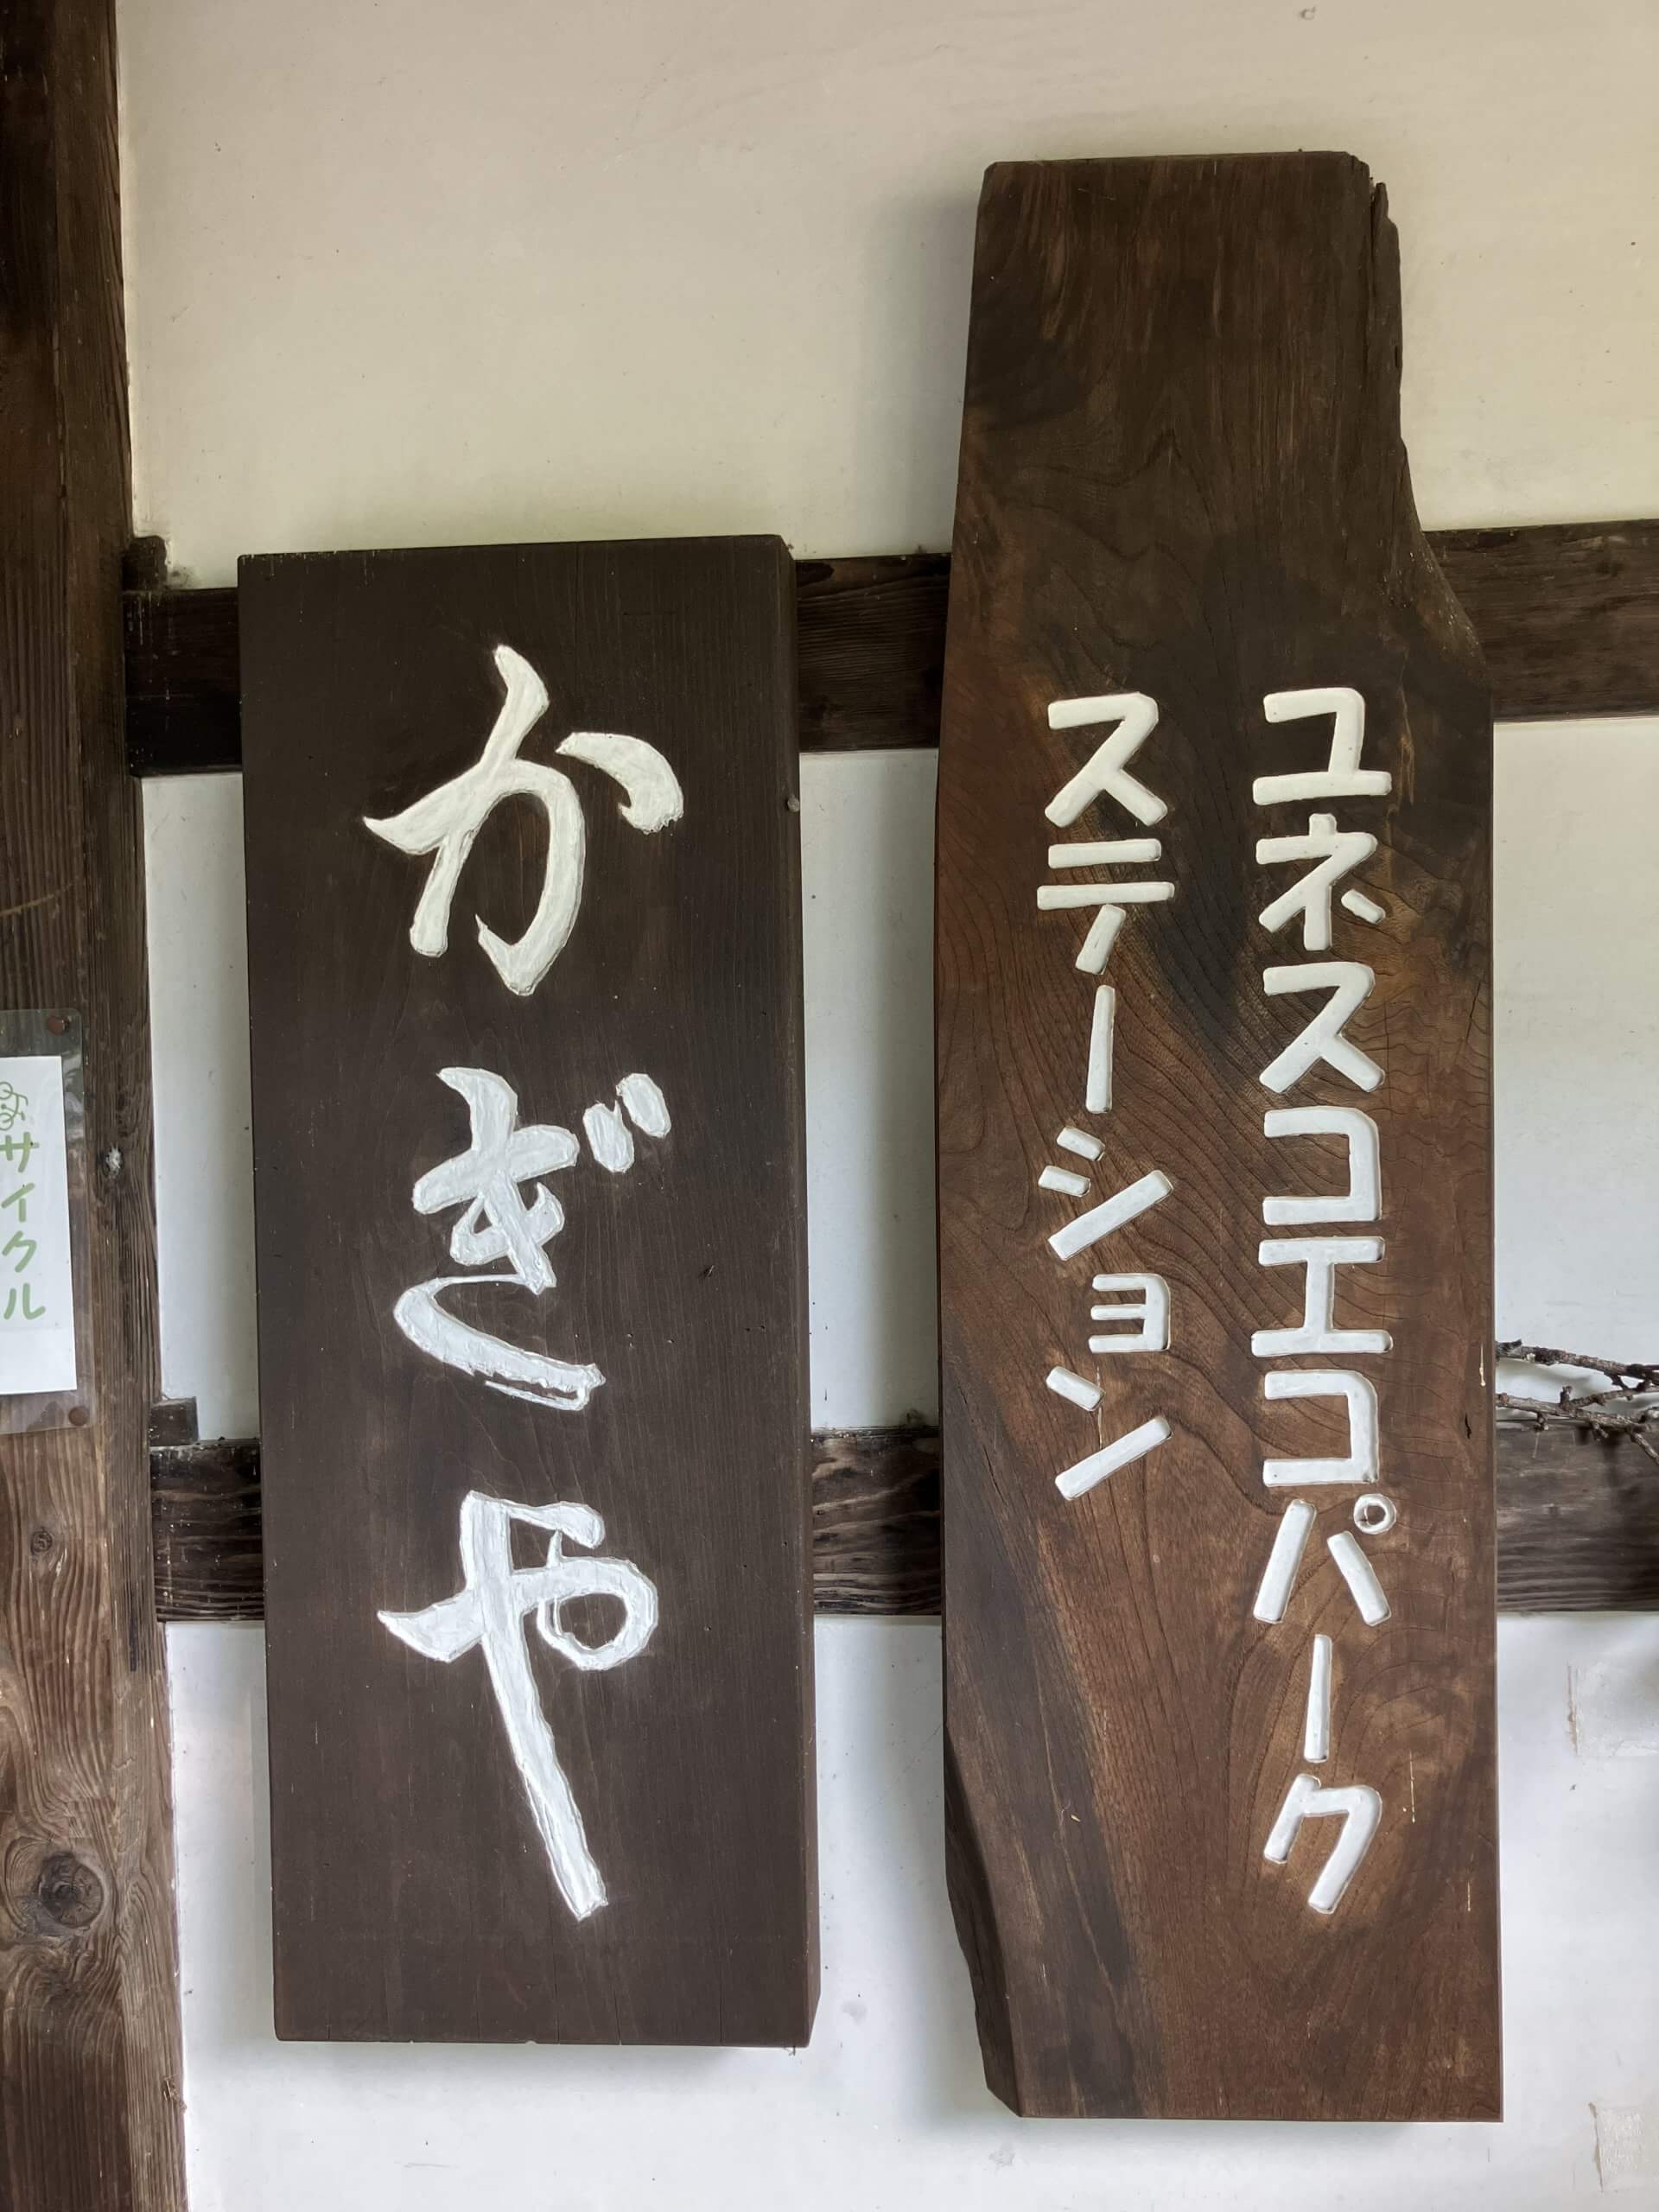 ユネスコエコパーク
ステーション
かぎや
サイクル